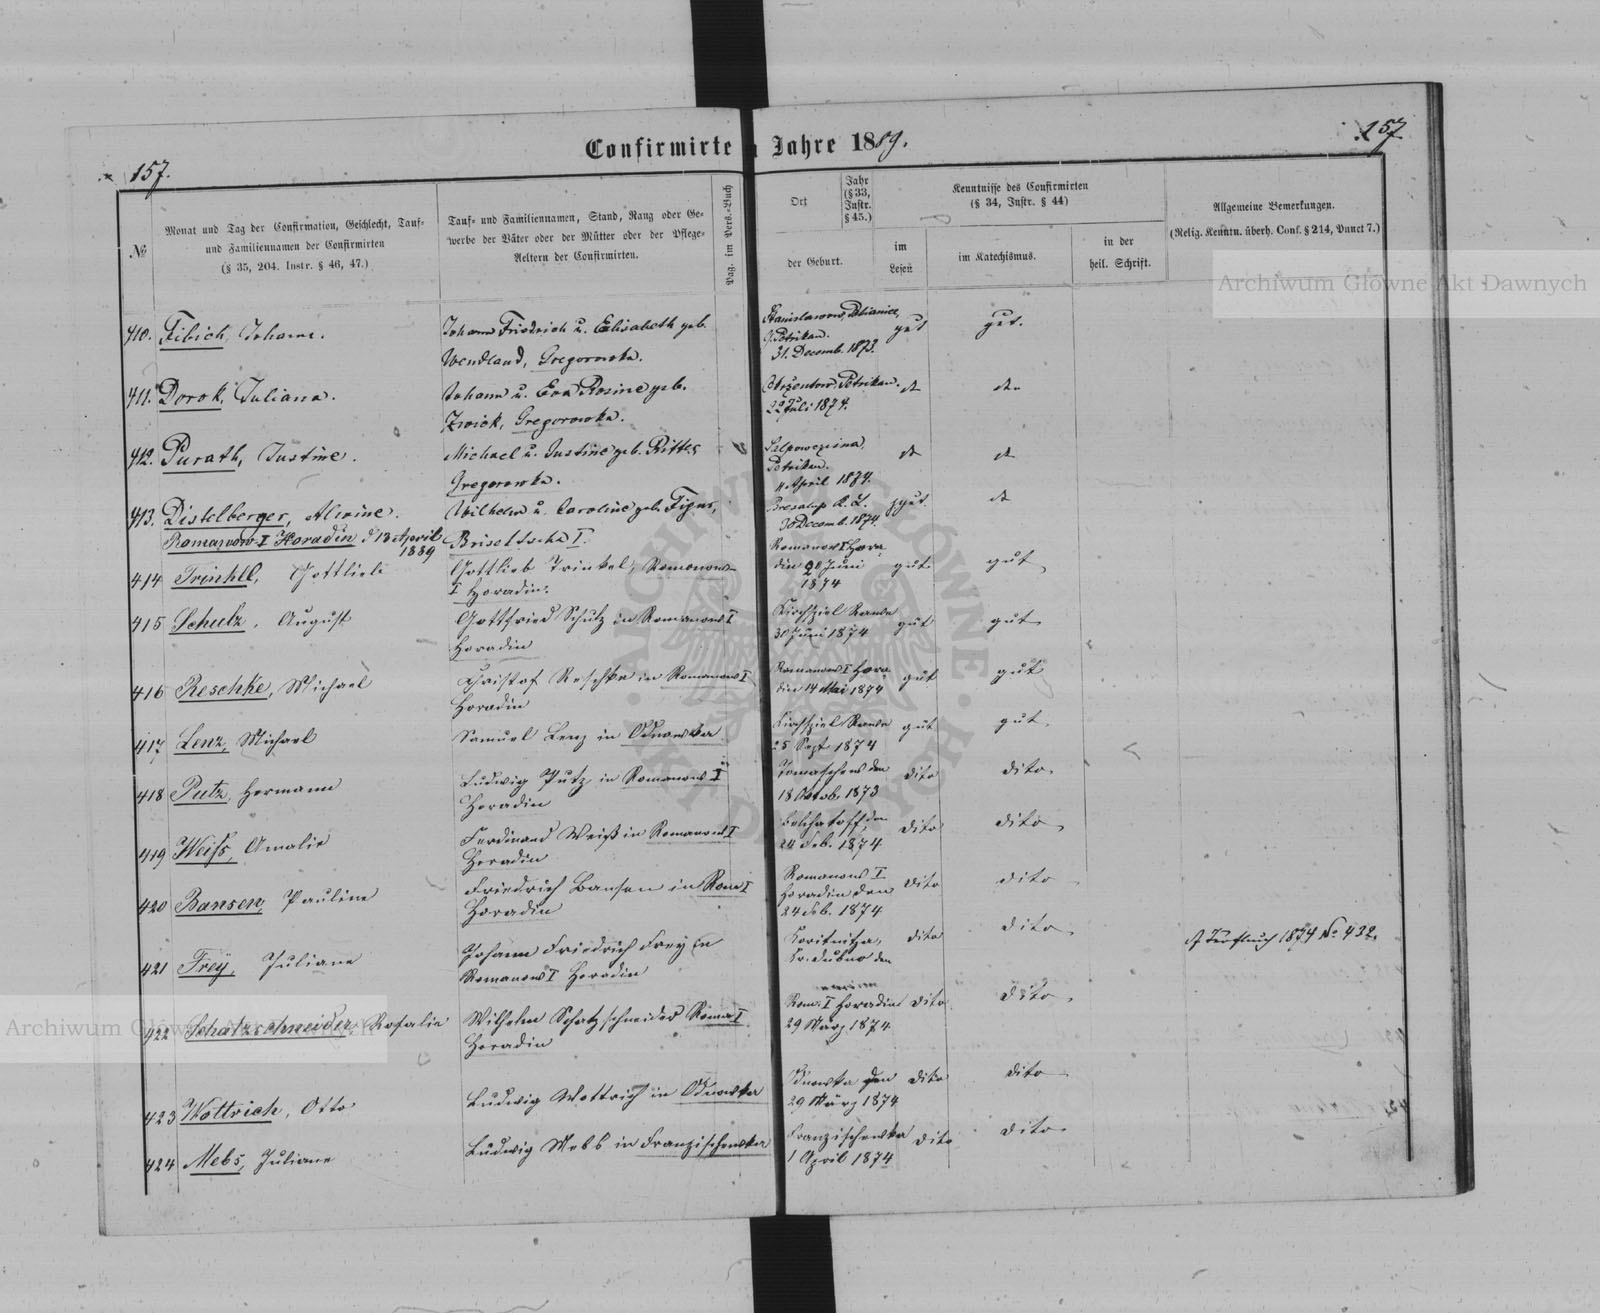 Confirmirte Jahre 1889.
157.
157
№
Monat und Tag der Confirmation, Geschlecht, Tauf-
und Familiennamen der Confirmirten
(§ 35, 204. Instr. § 46, 47.)
Tauf- und Familiennamen, Stand, Rang oder Ge-
werbe der Väter oder der Mütter oder der Pflege-
Aeltern der Confirmirten.
Pag. im Pers.-Buch
Ort
Jahr
(§ 33,
Instr.
§ 45.)
der Geburt.
Kenntnisse des Confirmirten
(§ 34, Instr. § 44)
im
Lesen
im Katechismus.
in der
heil. Schrift.
Allgemeine Bemerkungen.
(Relig. Kenntn. überh. Conf. § 214, Punct 7.)
410. Fibich, Johann.
Johann Friedrich u. Elisabeth geb.
Wendland, Gregorowka.
Stanislawow, Petrikau.
31. Decemb. 1873.
gut
gut.
411. Dorok, Juliana.
Johann u. Eva Rosine geb.
Zwick, Gregorowka.
Petrikau.
22 Juli 1874.
do
do
412. Purath, Justine.
Michael u. Justine geb. Ritter,
Gregorowka.
Petrikau.
11 April 1874.
do
do
413. Distelberger, Alwine.
Wilhelm u. Caroline geb.
Brisettscha I.
30 Decemb. 1874.
gut.
do
Romanow I Horadin d 13 April
1889
414 Trinkel, Gottlieb
Gottlieb Trinkel, Romanow
I Horadin.
Romanow I Hora
din 20 Juni
1874
gut
gut
415 Schulz, August
Gottfried Schulz in Romanow I
Horadin
Kirchspiel Rawa
30 Juni 1874
gut
gut
416 Reschke, Michael
Christof Reschke in Romanow I
Horadin
Romanow I Hora
din 14 Mai 1874
gut
gut
417 Lenz, Michael
Samuel Lenz in Odnowka
Kirchspiel Rawa
25 Sept 1874
gut
gut
418 Putz, Hermann
Ludwig Putz in Romanow I
Horadin
Tomaschow den
18 Octob. 1873
dito
dito.
419 Weiss, Amalie
Ferdinand Weiß in Romanow I
Horadin
Belchatoff, den
24 Feb. 1874
dito
dito
420 Bansen, Pauline
Friedrich Bansen in Rom I
Horadin
Romanow I
Horadin den
24 Feb. 1874
dito
dito
421 Frey, Juliane
Johann Friedrich Frey in
Romanow I Horadin
Koritnitza,
Kr. Dubno den
dito
dito
1874 No 432.
422 Schatzschneider, Rosalie
Wilhelm Schatzschneider Roma I
Horadin
Rom. I Horadin
29 März 1874
dito
dito
423 Wottrich, Otto
Ludwig Wottrich in Odnowka
Odnowka den
29 März 1874
dito
dito
424 Mebs, Juliane
Ludwig Mebs in Franzischewka
Franzischewka
1 April 1874
dito
dito
Archiwum Główne Akt Dawnych
Archiwum Główne Akt Dawnych
ARCHIWUM GŁÓWNE AKT DAWNYCH